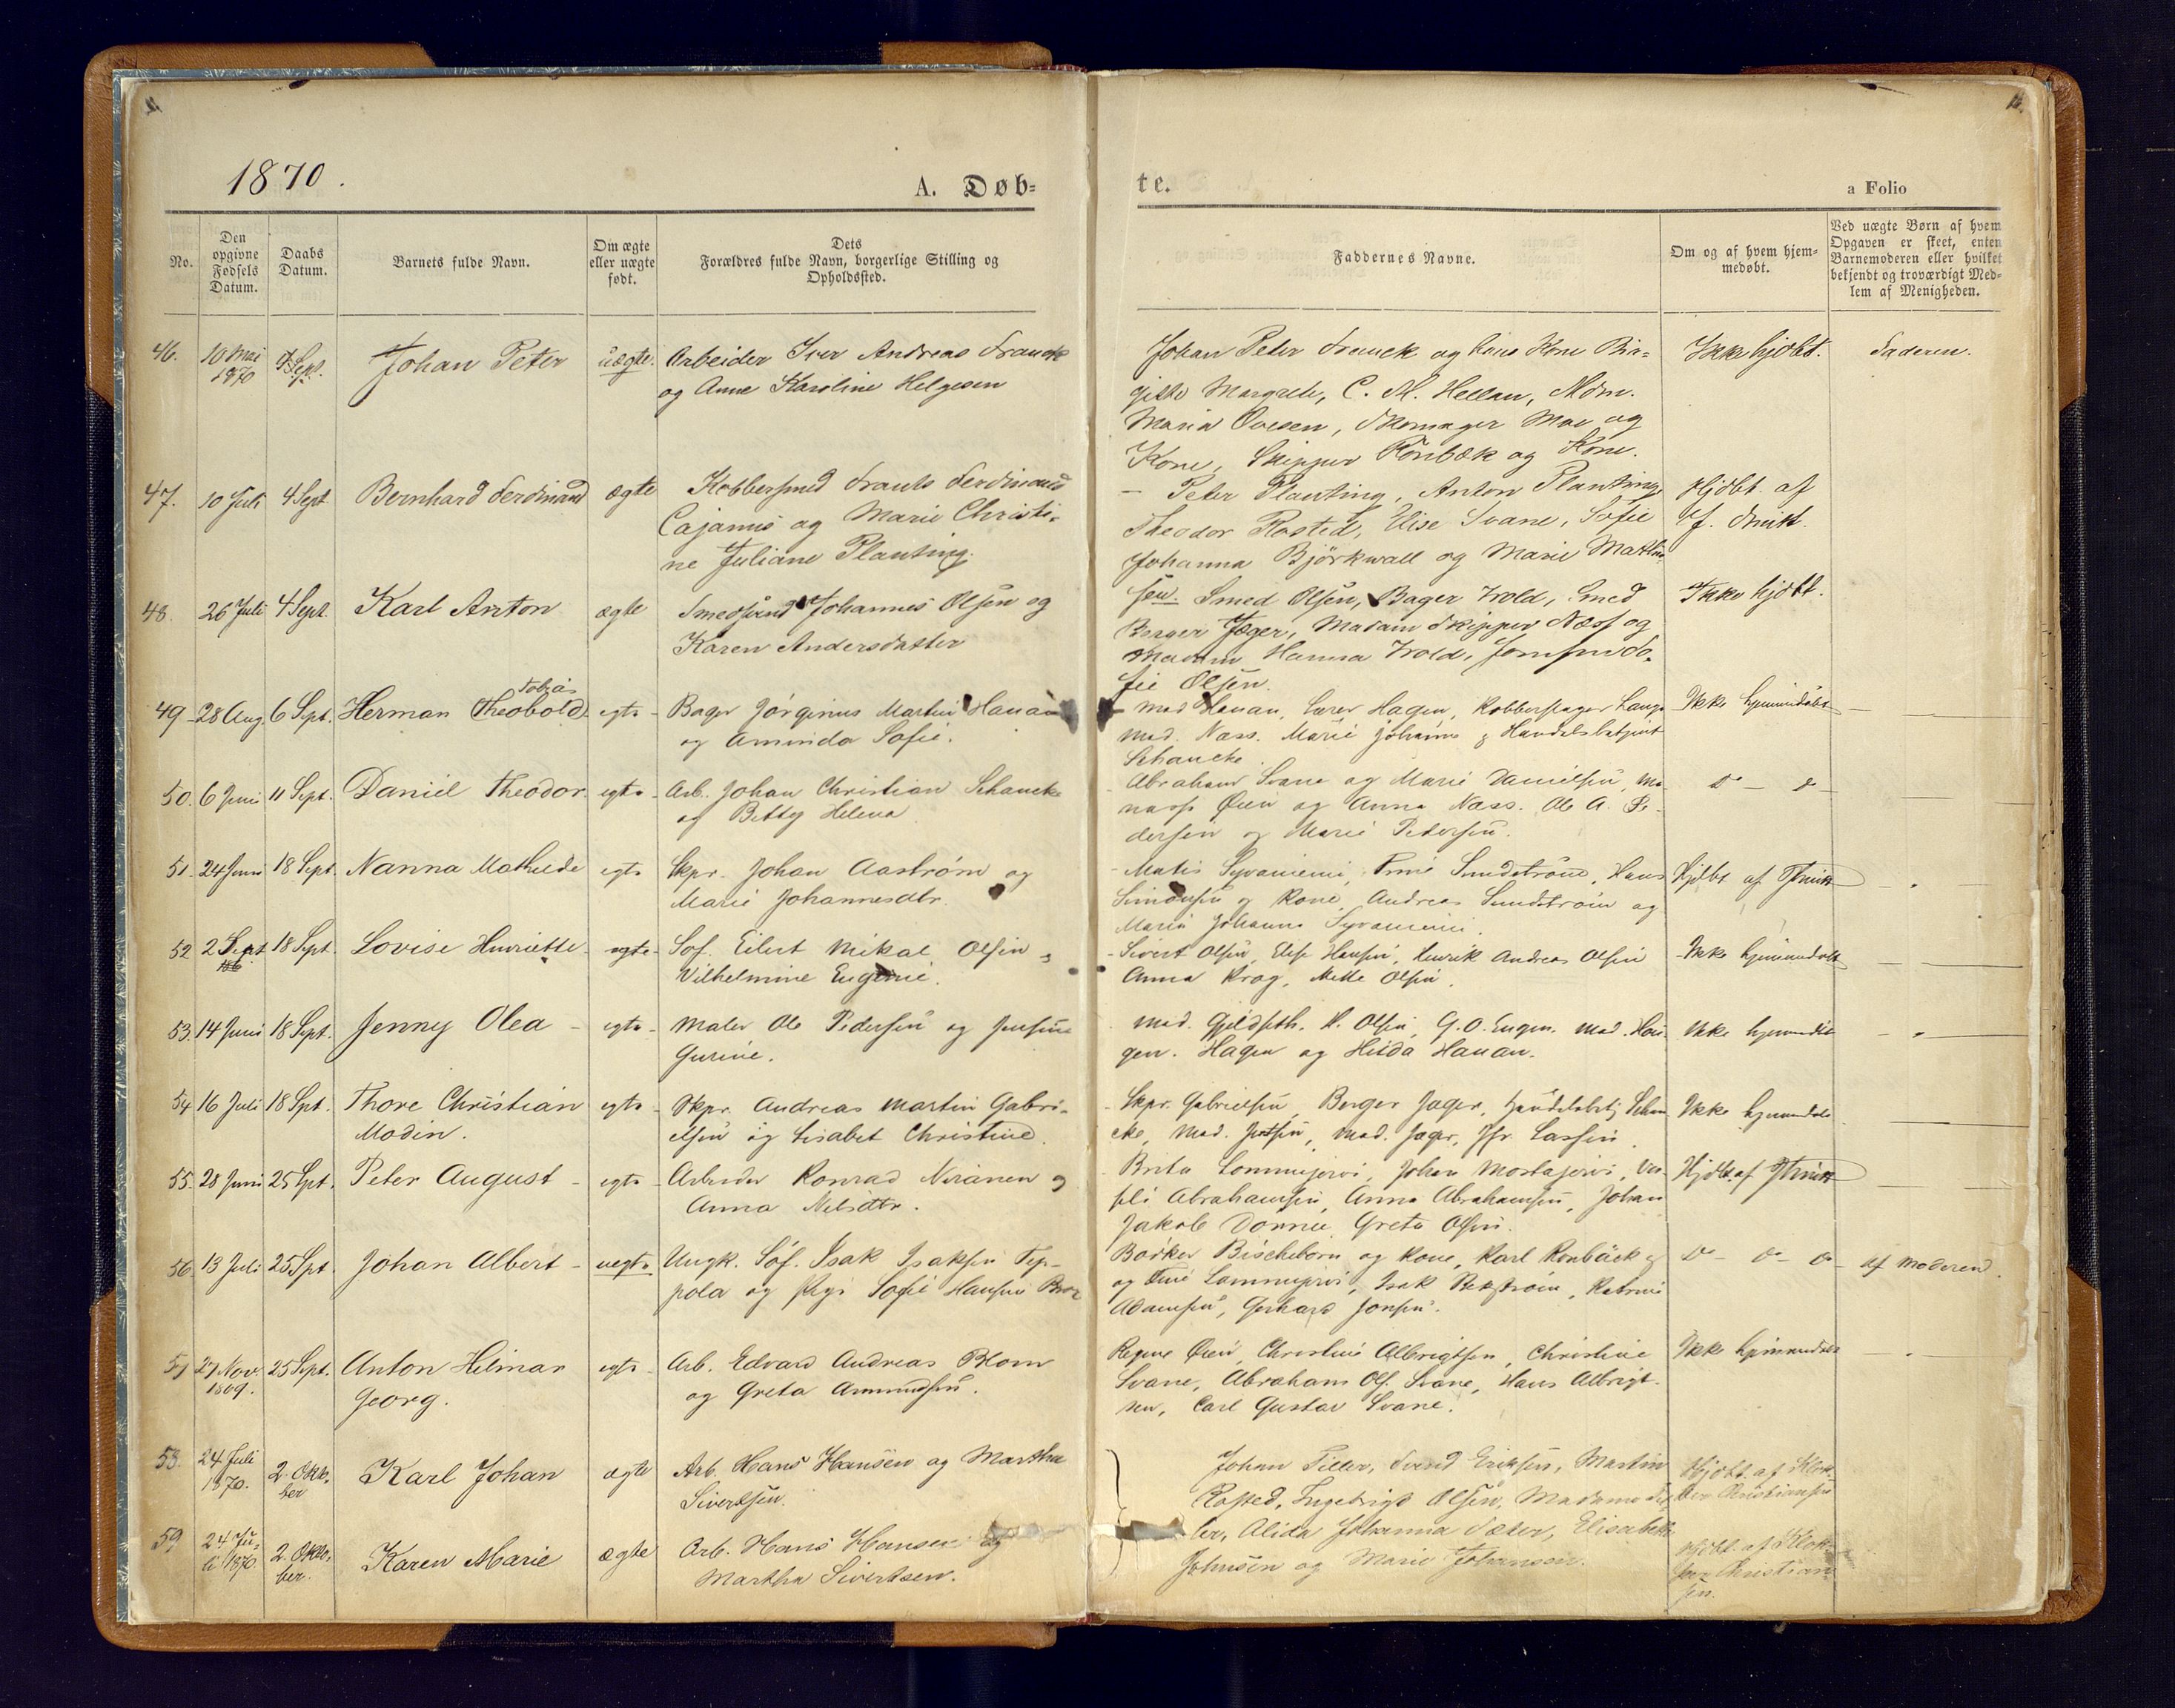 1870.
A. Døb=
te.
a Folio
No.
Den opgivne Fødsels Datum.
Daabs Datum.
Barnets fulde Navn.
Om ægte eller uægte født.
Dets
Forældres fulde Navn, borgerlige Stilling og
Opholdssted.
Faddernes Navne.
Om og af hvem hjem-
medøbt.
Ved uægte Børn af hvem
Opgaven er skeet, enten
Barnemoderen eller hvilket
bekjendt og troværdigt Med-
lem af Menigheden.
46. 10 Mai 1870 4 Sept. Johan Peter uægte. Arbeider Iver Andreas Franck
og Anne Karoline Helgesen
Johan Peter Franck og hans Kone Bir-
gitte Margrete, C. M. Hellan, Mdm.
Maria Ovesen, Skomager Moe og
Kone, Skipper Rönbæk og Kone.
Ikke hjdbt.
Faderen.
47. 10 Juli 4 Sept. Bernhard Ferdinand ægte Kobbersmed Frants Ferdinand
Cajanus og Marie Christi-
ne Juliane Planting.
- Peter Planting, Anton Planting
Theodor Rosted, Elise Svane, Sofie
Johanna Björkwall og Marie Mathi-
sen.
Hjdbt. af
Jf. Smitt.
48. 26 Juli 4 Sept. Karl Anton ægte Smedsvend Johannes Olsen og
Karen Andersdatter
Smed Olsen, Bager Trold, Smed
Berger Jæger, Madam Skipper Næss og
Madam Hanna Trold, Jomfru So-
fie Olsen.
Ikke hjdbt.
49 28 Aug. 6 Sept. Herman Tobias Theobold egte Bager Jørginus Martin Hanan
og Aminda Sofie.
Mad Hanan, Lærer Hagen, Kobberslager Lange
Mad. Næss. Marie Johanne & Handelsbetjent
Schancke.
Ikke hjemmedøbt
50. 6 Juni 11 Sept. Daniel Theodor egte Arb. Johan Christian Schancke
og Betty Helena
Abraham Svane og Marie Danielsen, Ma-
nass Øien og Anna Næss. Ole A. Pe-
dersen og Marie Pedersen.
Do - Do
51. 24 Juni 18 Sept. Nanna Mathilde egte Skpr. Johan Aastrøm og
Marie Johannesdtr.
Matis Syvaniemi, Sundstrøm, Hans
Simonsen og Kone, Andreas Sundstrøm og
Maria Johanna Syvaniemi.
Hjdbt af Smitt
52 2 Sept 18 Sept. Lovise Henriette egte Søf. Eilert Mikal Olsen &
Vilhelmine Eugenie.
- Sivert Olsen, Elise Hansen, Henrik Andreas Olsen
Anna Krog, Mette Olsen.
Ikke hjemmedøbt
53. 14 Juni 18 Sept. Jenny Olea egte Maler Ole Pedersen og Jensine
Gurine.
Mad. Gjeldseth. H. Olsen, G. O. Engen. Mad. Hau-
gen. Hagen og Hilda Hanan.
Ikke hjemmedøbt
54 16 Juli 18 Spt. Thore Christian
Modin.
egte Skpr. Andreas Martin Gabri-
elsen og Lisabet Christine.
Skpr. Gabrielsen, Berger Jæger, Handelsbetj. Schan-
cke, Mad. , Mad. Jæger, Jfr. Lassen.
Ikke hjemmedøbt
55. 28 Juni 25 Spt. Peter August egte Arbeider Konrad Niranen &
Anna Nilsdtr.
Brita Lommujervi, Johan Mostajervi,
Abrahamsen, Anna Abrahamsen, Johan
Jakob Greta Olsen.
Hjdbt. af Smitt
56. 13 Juli 25 Spt. Johan Albert uegte Ungk. Søf. Isak Isaksen Tep-
pola og Pige Sofie Hansen
Bødker Bischeborn og Kone, Karl Rønbäck
og Lommujervi, Isak Bekstrøm,
Adamsen, Gerhard Jonsen.
Do - Do - Do
Af Moderen.
57 27 Nov. 1869. 25 Sept. Anton Hilmar
Georg.
egte Arb. Edvard Andreas Blom
og Greta Amundsen.
Regine Øien, Christine Albrigtsen, Christine
Svane, Abraham Ols. Svane, Hans Albrigt-
sen, Carl Gustav Svane.
Ikke hjemmedøbt
58. 24 Juli 1870. 2. Okto-
ber
Karl Johan ægte Arb. Hans Hansen og Martha
Sivertsen.
Johan Tiller, Svend Eriksen, Martin
Rosted, Ingebrigt Olsen, Madame Sæ-
ter, Alida Johanna Sæter, Elisabeth
Johnsen og Marie Johansen.
Hjdbt. af Klok-
ker Christiansen
59 24 Ju-
li 1870 2. Okto-
ber.
Karen Marie ægte Arb. Hans Hansen og
Martha Sivertsen.
Hjdbt. af Klok-
ker Christian-
sen.